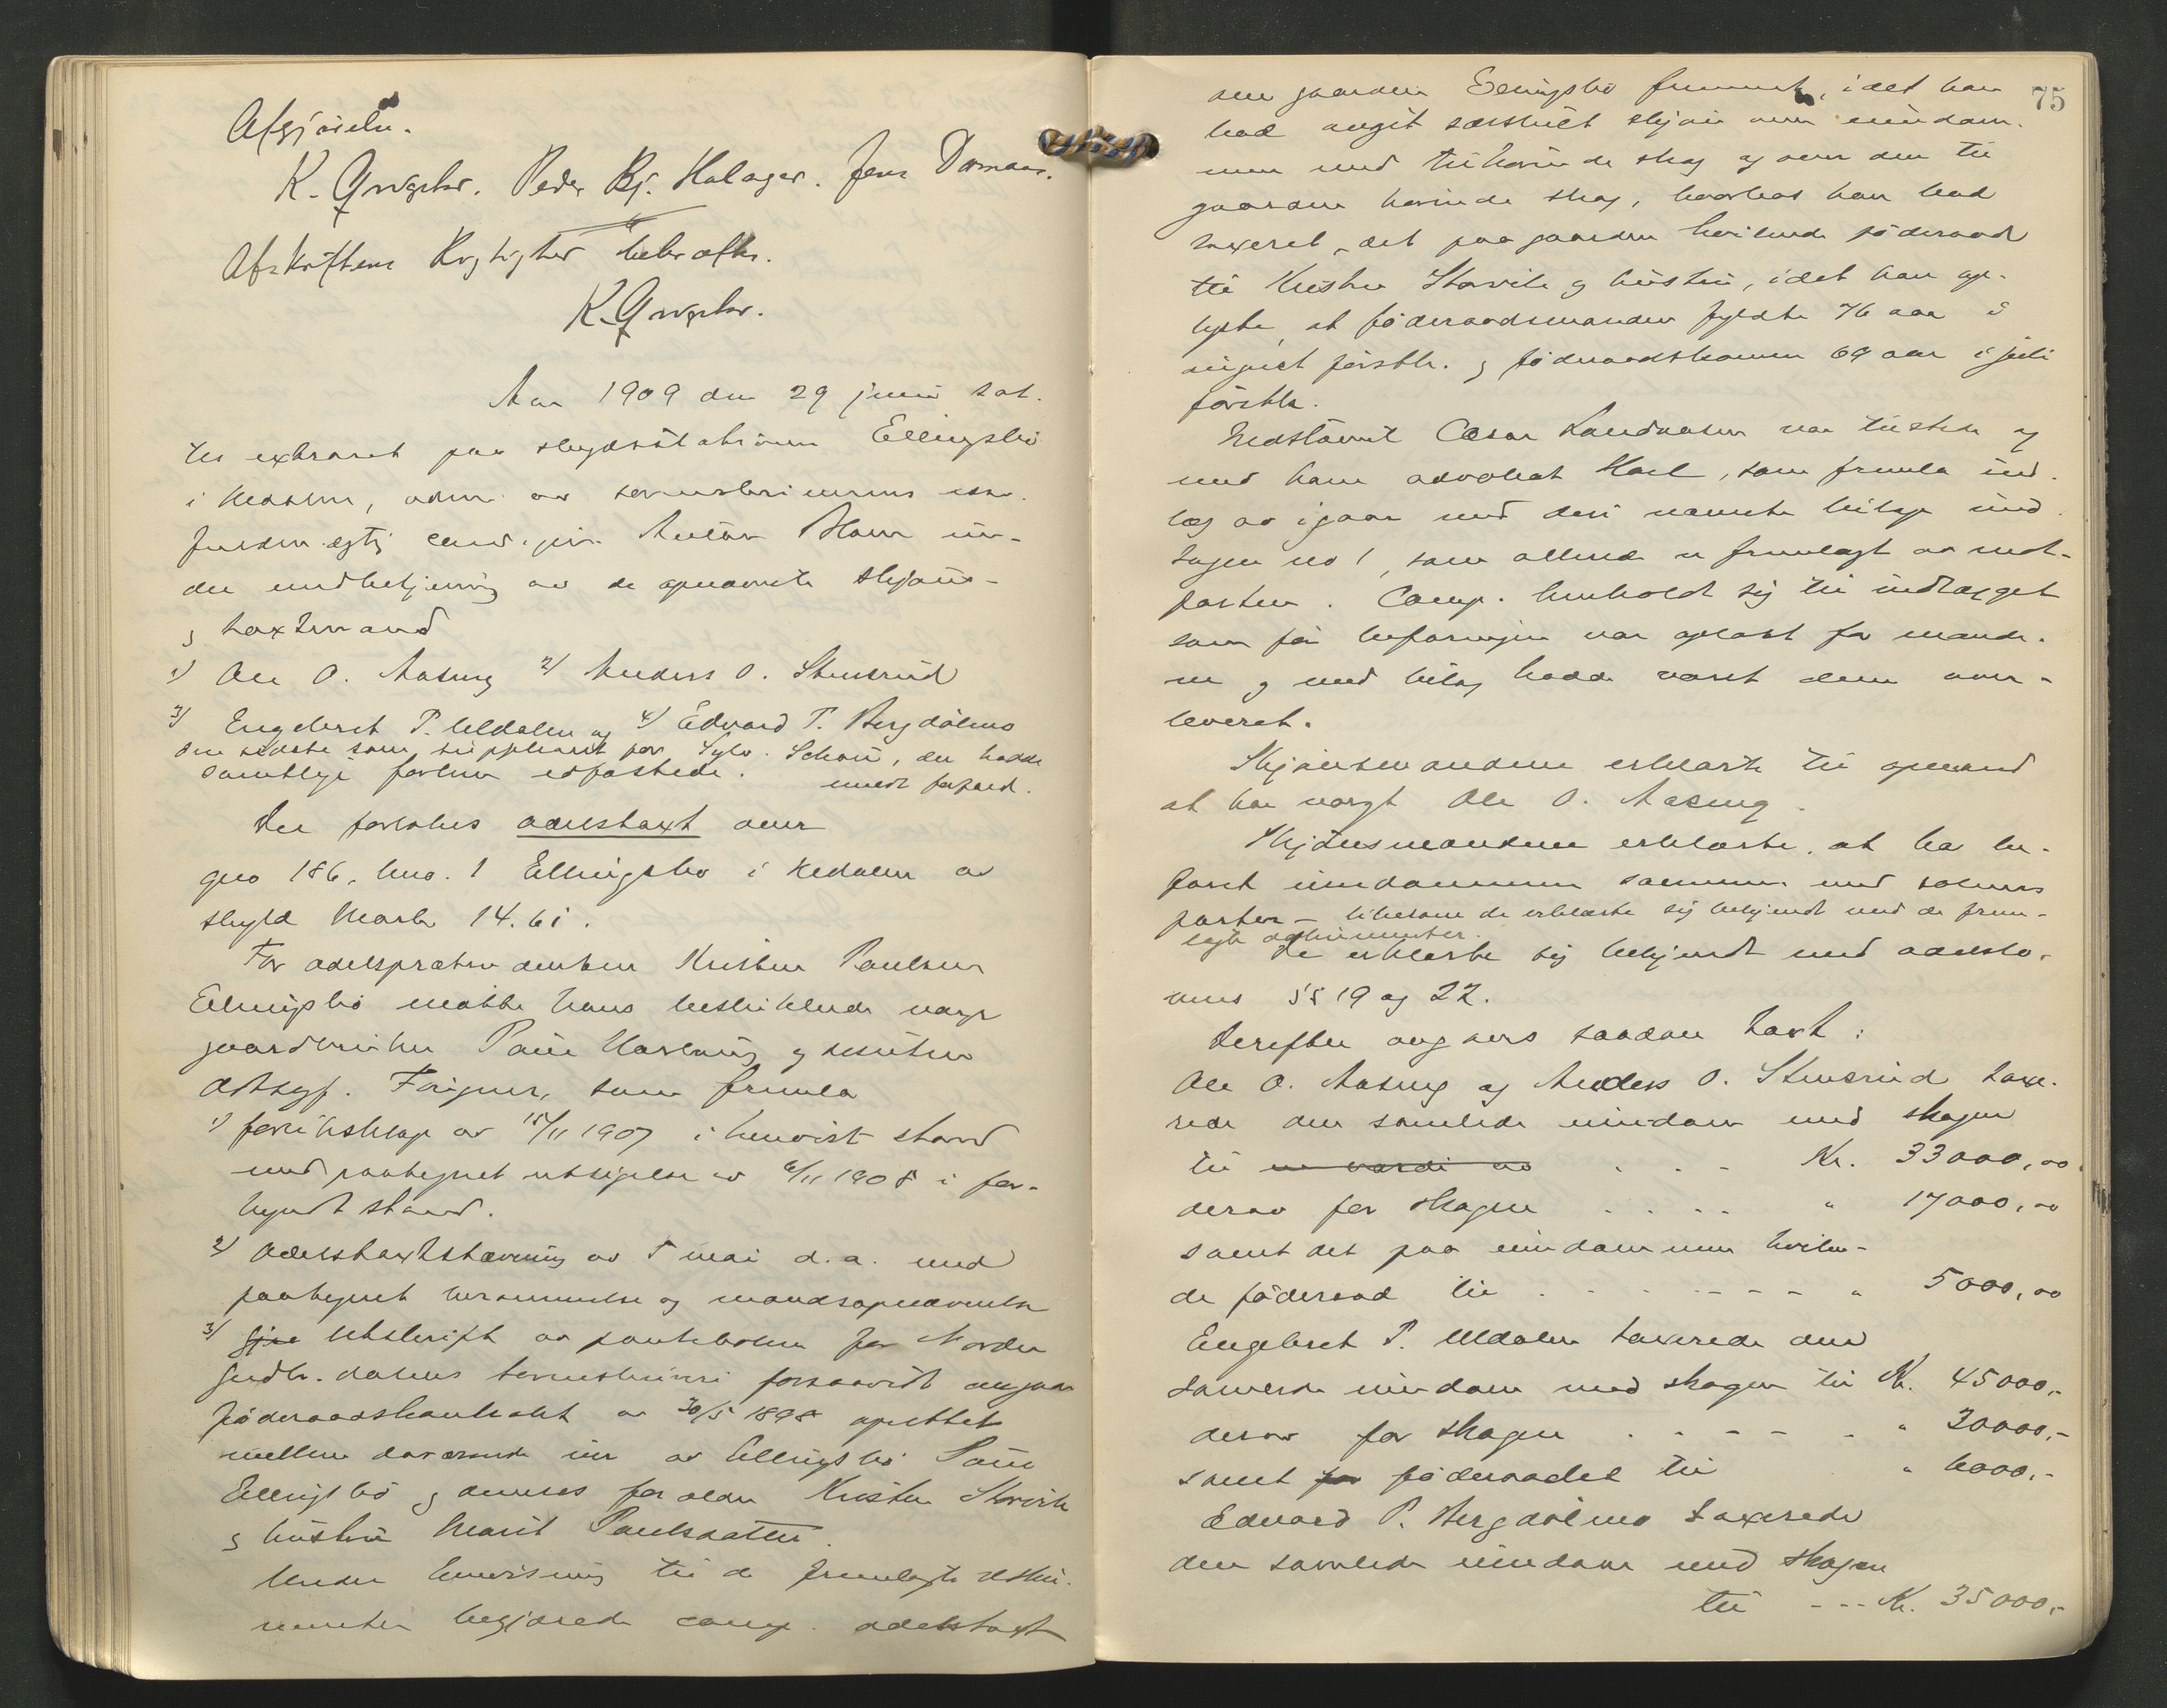 Afgjörelse.
K. Peder Bj. Holager. Jens
Afskriftens Rigtighet bekræftes.
K.
Aar 1909 den 29 juni sat.
tes extraret paa skydsstationen Ellingsbö
i Nedalen, adm. av sorenskriverens
fuldmægtig cand. jur. Anton un-
der medbetjening av de opnævnte skjöns-
og taxtmænd
1) Ole O. Aaseng 2) Anders O. Stensrud
3) Engebret P. Uldalen og 4) Edvard P. Bergdölmo
den sidste som suppleant for Sylv. Schou, der hadde
samtlige forhen edfæstede. meldt forfald.
Der foretokes odelstaxt over
gno 186, bno. 1 Ellingsbo i Nedalen av
skyld Mark 14.61.
For odelsprætendenten Kristen Paulsen
Ellingsbö mötte hans beskikkede verge
gaardbruker Paul og desuten
Frisgner, som fremla
1) forliksklage av 15/11 1907 i henvist stand
med paategnet utsigelse av 6/11 1908 i for-
kyndt stand.
2) Odelstaxtstævning av 5 mai d.a. med
paategnet berammelse og mandsopnævnelse
3) Utskrift av panteboken for Nordre
Gudbr. dalens sorenskriveri forsaavidt angaar
föderaadskontrakt av 30/5 1898 oprettet
mellem daværende eier av Ellingsbö Paul
Ellingsbö og dennes forældre Kristen Storvik
og hustru Marit Paulsdatter.
Under henvisning til de fremlagte doku-
menter begjærede comp. odelstaxt
75
over gaarden Ellingsbö fremmet, idet han
bad avgit særskilt skjön over eiendom-
men med tilhörende skog og over den til
gaarden hörende skog, hvorhos han bad
taxeret det paa gaarden hvilende föderaad
til Kristen Storvik og hustru, idet han op-
lyste, at föderaadsmanden fyldte 76 aar i
august förstk. og föderaadskonen 69 aar i juli
förstk.
Indstevnte Cæsar Landvasen var tilstede og
med ham advokat Kael, som fremla ind-
læg av igaar med deri nævnte bilage und-
tagen no 1, som allerede er fremlagt av mot-
parten. Comp. henholdt sig til indlægget
som för befaringen var oplæst for mænde-
ne og med bilag hadde været dem over-
leveret.
Skjönsmændene erklærte til opmand
at ha valgt Ole O. Aaseng.
Skjönsmændene erklærte, at ha be-
faret eiendommen sammen med sakens
parter – likesom de erklærte sig bekjendt med de frem-
lagte dokumenter.
De erklærte sig bekjendt med odelslo-
vens §§ 19 og 22.
Derefter avgaves saadan taxt:
Ole O. Aaseng og Anders O. Stensrud taxe-
rede den samlede eiendom med skogen
til en værdi av . . - Kr. 33000,00
derav for skogen . . . . " 17000,00
samt det paa eiendommen hvilen-
de föderaad til . . . . . " 5000,00
Engebret P. Uldalen taxerede den
samlede eiendom med skogen til Kr. 45000,-
derav for skogen . . - - - " 30000,-
samt for föderaadet til " 6000,-
Edvard P. Bergdölmo taxerede
den samlede eiendom med skogen
til - - - Kr. 35000,-